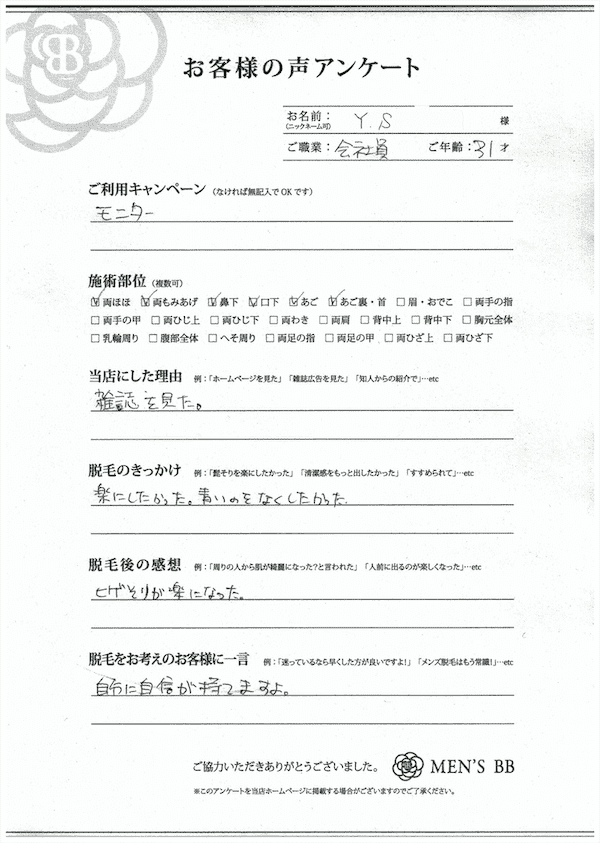 BB
お客様の声アンケート
お名前： Y.S 様
(ニックネーム可)
ご職業：会社員 ご年齢：31才
ご利用キャンペーン（なければ無記入でOKです）
モニター
施術部位（複数可）
☑両ほほ ☑両もみあげ ☑鼻下 ☑口下 ☑あご ☑あご裏・首 □眉・おでこ □両手の指
□両手の甲 □両ひじ上 □両ひじ下 □両わき □両肩 □背中上 □背中下 □胸元全体
□乳輪周り □腹部全体 □へそ周り □両足の指 □両足の甲 □両ひざ上 □両ひざ下
当店にした理由 例：「ホームページを見た」「雑誌広告を見た」「知人からの紹介で」…etc
雑誌を見た。
脱毛のきっかけ 例：「髭そりを楽にしたかった」「清潔感をもっと出したかった」「すすめられて」…etc
楽にしたかった。青いのをなくしたかった.
脱毛後の感想 例：「周りの人から肌が綺麗になった?と言われた」「人前に出るのが楽しくなった」…etc
ヒゲそりが楽になった。
脱毛をお考えのお客様に一言 例：「迷っているなら早くした方が良いですよ!」「メンズ脱毛はもう常識!」…etc
自分に自信が持てますよ。
ご協力いただきありがとうございました。 MEN'S BB
※このアンケートを当店ホームページに掲載する場合がございますのでご了承ください。